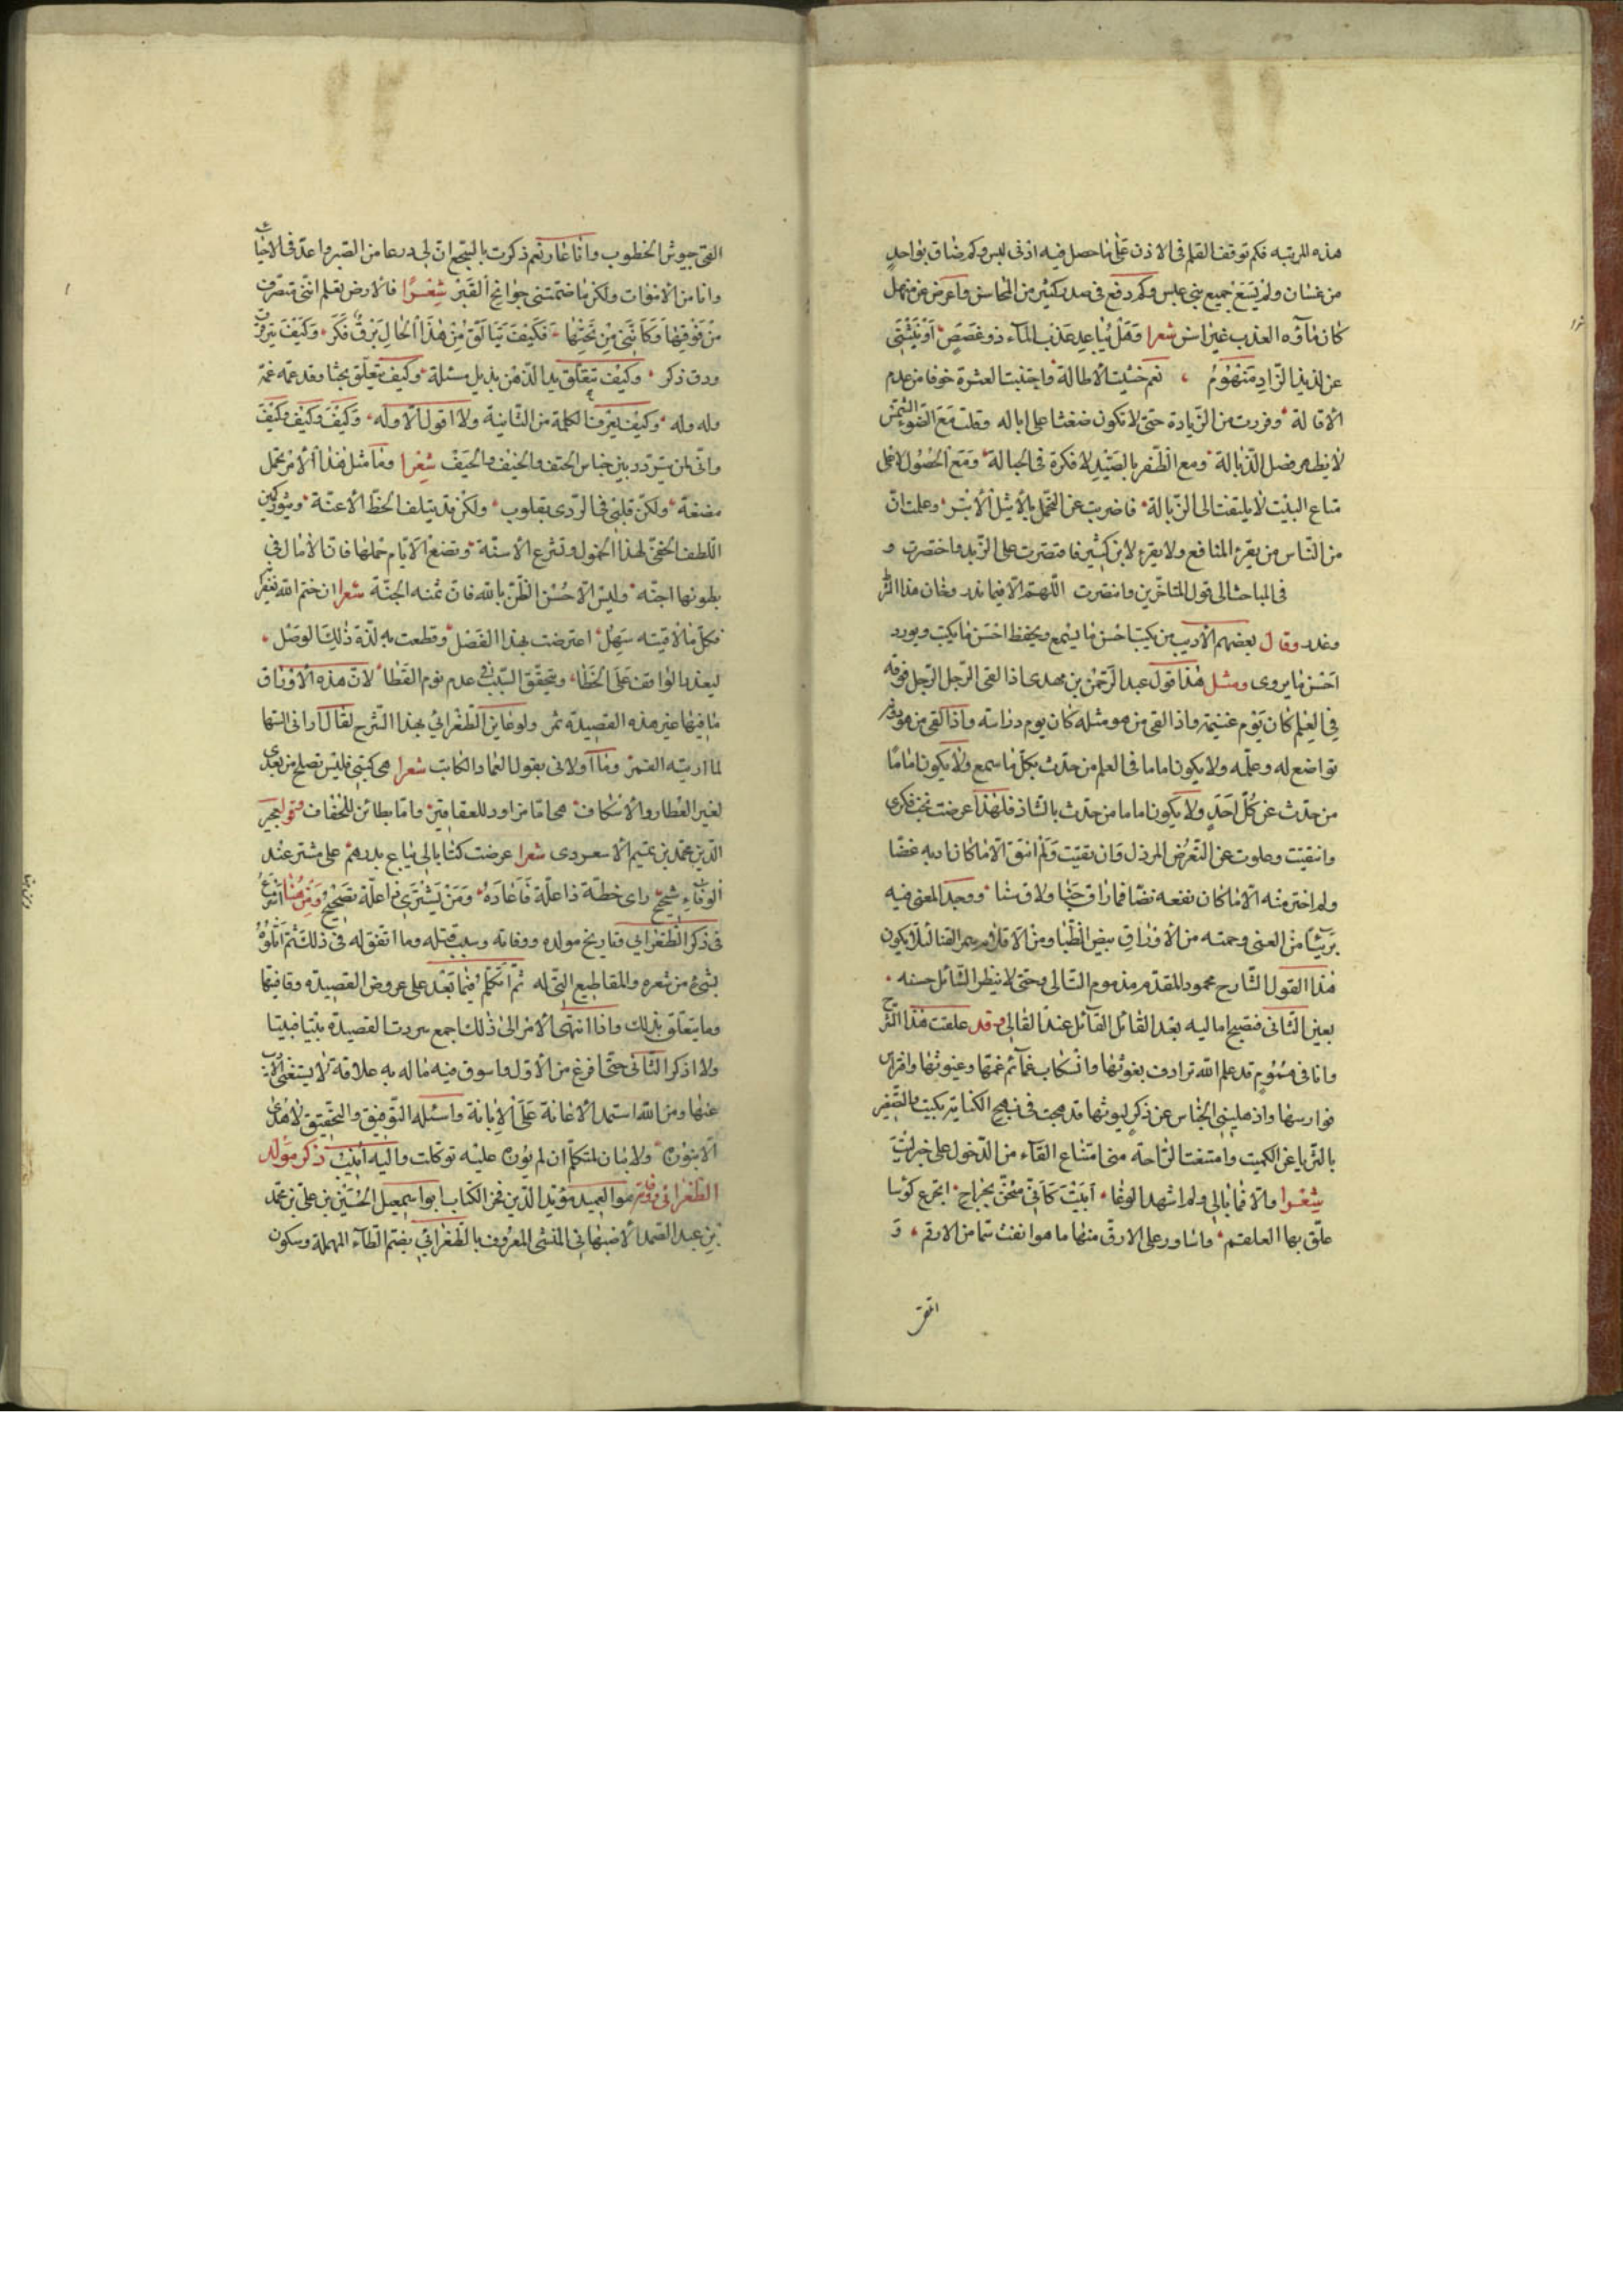 هذه المرتبه فكم توقف القلم فى الاذن على ما حصل فيه اذنى لبس وكم ضاق بواحد
من غسان ولم يسع جميع بنى عبس وكم دفع فى صدر كثير من المحاسن واعرض عن منهل
كان ماؤه العذب غير اسن شعرا وهل يباعد عذب الماء ذو غصص او ينثنى
عن لذيذ الزاد منهوم نعم خشيت الاطالة واجتنبت العشرة خوفا من عدم
الاقالة وفررت من الزيادة حتى لا تكون ضغثا على اباله وقلت مع الضوء الشمس
لا يظهر فضل الذبالة ومع الظفر بالصيد لا فكرة فى الحبالة ومع الحصول لاعلى
متاع البيت لا يلتفت الى الزبالة فاضربت عن التحمل بالاثيل الابتر وعلمت ان
من الناس من يقرء المنافع ولا يقرء لابن كثير فاقتصرت على الزبد واختصرت و
فى المباحث الى قول المتاخرين وانتصرت اللهم الا فيما ندر وخان هذا الشر
وغدر وقال بعضهم الاديب من يكتب احسن ما يسمع ويحفظ احسن ما يكتب ويورد
احسن ما يروى ومثل هذا قول عبد الرحمن بن مهدى اذا لقى الرجل الرجل فوقه
فى العلم كان يوم غنيمته واذا لقى من هو مثله كان يوم دراسته واذا لقى من هو دونه
تواضع له وعلمه ولا يكون اماما فى العلم من حدث بكل ما سمع ولا يكون اماما
من حدث عن كل احد ولا يكون اماما من حدث بالشاذ فلهذا عرضت نخب فكرى
وانتقيت وعلوت عن التعرض المرذل وان بقيت ولم انتق الا ما كان ادبه غضا
ولم اختر منه الا ما كان نفعه نضا فما راق جنا ولاق سنا ووجد المعنى فيه
بريئا من العنى وحمته من الاوراق بيض الظبا ومن الاقلام سمر القنا لئلا يكون
هذا القول الشارح محمود المقدم مذموم التالى وحتى لا ينظر السائل حسنه
بعين الثانى فتصبح اماليه بعد القائل القائل عند القالى وقد علقت هذا الشرح
وانا فى هموم قد علم الله ترادف بغوثها وانسكاب غمائم غمها وغيوثها وافتراس
فوارسها واذهلينى الخاس عن ذكر ليوثها قد مجت فى نهج الكنايه بكيت بالصفير
بالثريا عن الكميت وامتنعت الراحة منى امتناع الفاء من الدخول على خبر ليت
شعرا والا فما بالى ولم اشهد الوغا ابيت كانى مثخن بجراح اتجرع كوسا
علق بها العلقم واساور على الارق منها ما هو انفث سما من الارقم و
القى
القى جيوش الخطوب وانا عار نعم ذكرت بالسجع ان لى درعا من الصبر واعد فى الاحياء
وانا من الاموات ولكن ما ضمتنى جوانح القبر شعرا فالارض تعلم اننى متصرف
من فوقها وكاننى من تحتها فكيف يتالق من هذا الحال برق فكر وكيف يترنم
ورق ذكر وكيف يتعلق يد الذهن بذيل مسئلة وكيف يتعلق بحثا وقد عمه غمه
وله وله وكيف يعرف الكلمة من الثانية ولا اقول الاوله وكيف وكيف وكيف
وانى لمن يتردد بين جناس الحتف والخيف والحيف شعرا وما مثل هذا الامر يحمل
مضغة ولكن قلبى فى الردى بقلوب ولكن قد يتلف الحظ الاعنة ويثور كمين
اللطف الخفى لهذا الخول وتشرع الاسنة وتضع الايام حملها فان الامال فى
بطونها اجنة وليس الا حسن الظن بالله فان ثمنه الجنة شعرا ان ختم الله بغفرانه
فكل ما لاقيته سهل اعترضت بهذا الفضل وقطعت به لذة ذلك الوصل
ليعذر الواقف على الخطا ويتحقق السبب فى عدم نوم القطا لان هذه الاوراق
ما فيها غير هذه القصيدة ثمر ولو عاين الطغرائى بهذا الشرح لقال ارانى السها
لما اريته القمر وما اولانى بقول العماد الكاتب شعرا هى كتبى فليس تصلح من بعدى
لغير العطار والاسكاف هى اما مزاود للعقاقير واما بطائن للخفاف
الدين محمد بن تميم الاسعردى شعرا عرضت كتابا لى يباع بدرهم على مشتر عند
الوفاء شحيح راى خطه ذا علة فاعاده ومن يشترى ذا علة بصحيح ومن هنا اشرع
فى ذكر الطغرائى وتاريخ مولده ووفاته وسبب قتله وما اتفق له فى ذلك ثم اتلوه
بشىء من شعره والمقاطيع التى له ثم اتكلم فيما بعد على عروض القصيدة وقافيتها
وما يتعلق بذلك واذا انتهى الامر الى ذلك اجمع سردت القصيدة بيتا فبيتا
ولا اذكر الثانى حتى افرغ من الاول واسوق فيه ما له به علاقة لا يستغنى الادب
عنها ومن الله استمد الاعانة على الابانة واسئله التوفيق والتحقيق لا هدى
الا بنوره ولا بيان لمتكلم ان لم يؤره عليه توكلت واليه انيب ذكر مولد
الطغرائى ووفاته هو العميد مؤيد الدين فخر الكتاب ابو اسمعيل الحسين بن على بن محمد
بن عبد الصمد الاصبهانى المنشى المعروف بالطغرائى بضم الطاء المهملة وسكون